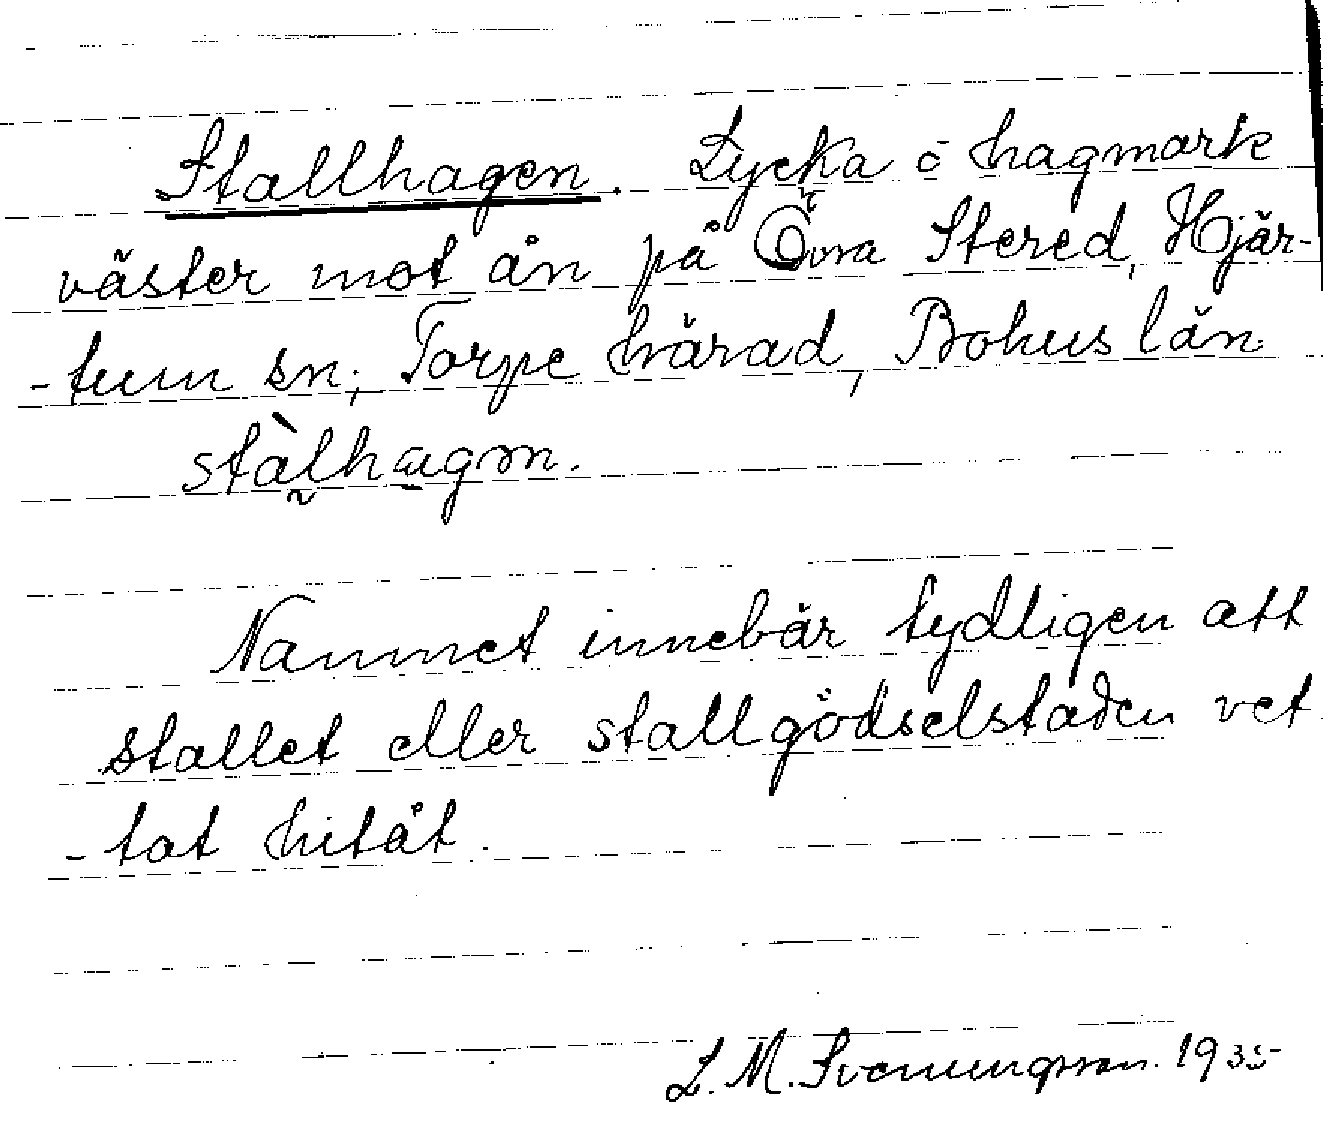 Stallhagen. Lycka o hagmark
väster mot ån på Övra Stered, Hjär-
-tum sn, Torpe härad, Bohus län.
stàlhagm.
Namnet innebär tydligen att
stallet eller stallgödselstaden vet
-tat hitåt.
L. M. Svenungsson. 1935